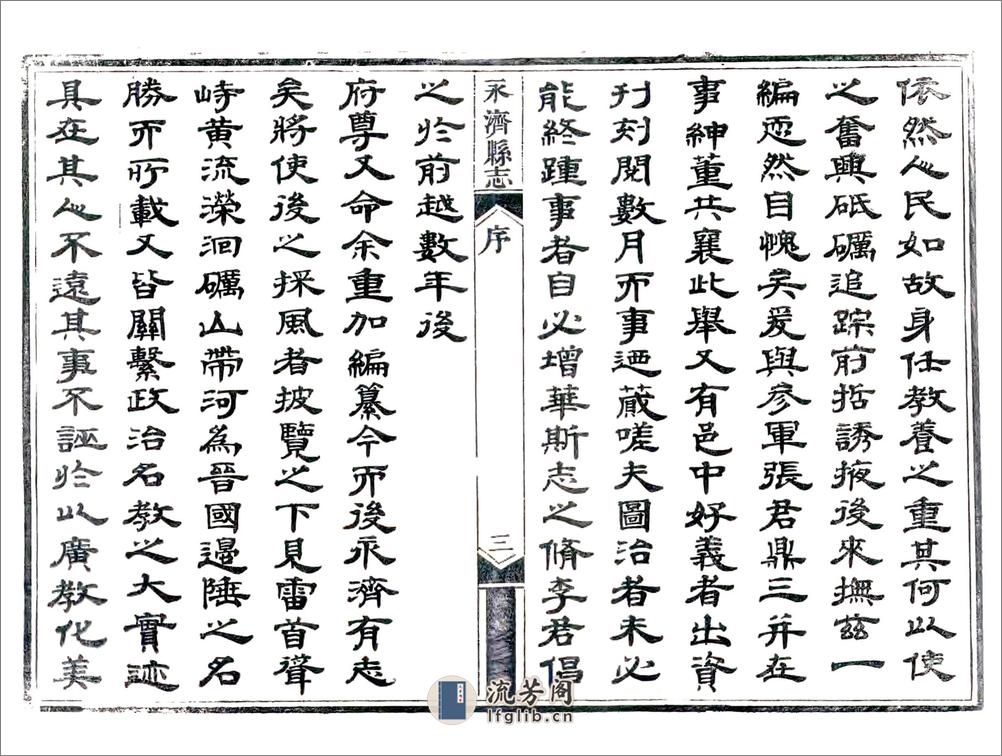 依然人民如故身任教養之重其何以使
之奮興砥礪追踪前哲誘掖後來撫茲一
編恧然自愧矣爰與參軍張君鼎三并在
事紳董共襄此舉又有邑中好義者出資
刊刻閱數月而事迺蕆嗟夫圖治者未必
能終踵事者自必增華斯志之脩李君倡
永濟縣志
序
三
之於前越數年後
府尊又命余重加編纂今而後永濟有志
矣將使後之採風者披覽之下見雷首聳
峙黃流濚洄礪山帶河為晉國邊陲之名
勝而所載又皆關繫政治名教之大實迹
具在其人不遠其事不誣於以廣教化美
流芳阁
lfglib.cn